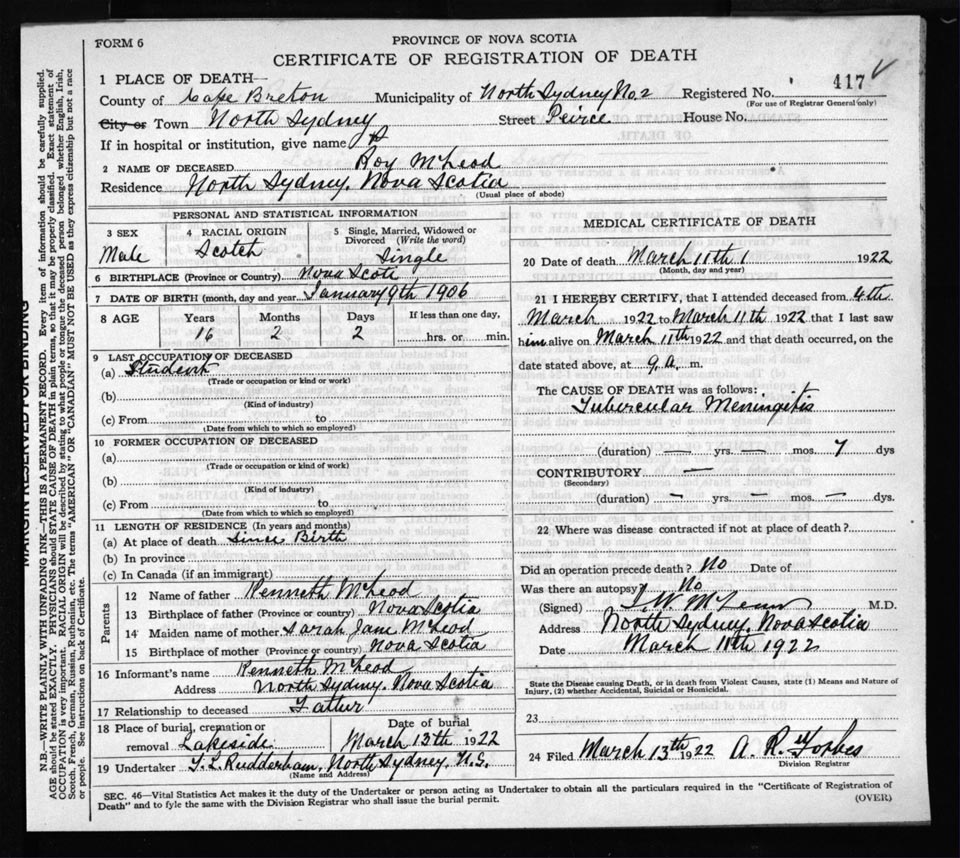 FORM 6
PROVINCE OF NOVA SCOTIA
CERTIFICATE OF REGISTRATION OF DEATH
1 PLACE OF DEATH—
417
County of Cape Breton Municipality of North Sydney No. 2 Registered No.
(For use of Registrar General only)
City or Town North Sydney Street Peirce House No.
If in hospital or institution, give name
2 NAME OF DECEASED Roy McLeod
Residence North Sydney, Nova Scotia
(Usual place of abode)
PERSONAL AND STATISTICAL INFORMATION
3 SEX 4 RACIAL ORIGIN 5 Single, Married, Widowed or Divorced (Write the word)
Male Scotch Single
6 BIRTHPLACE (Province or Country) Nova Scotia
7 DATE OF BIRTH (month, day and year) January 9th 1906
8 AGE Years Months Days If less than one day,
16 2 2 hrs. or min.
9 LAST OCCUPATION OF DECEASED
(a) Student
(Trade or occupation or kind or work)
(b)
(Kind of industry)
(c) From to
(Date from which to which so employed)
10 FORMER OCCUPATION OF DECEASED
(a)
(Trade or occupation or kind of work)
(b)
(Kind of industry)
(c) From to
(Date from which to which so employed)
11 LENGTH OF RESIDENCE (In years and months)
(a) At place of death Since Birth
(b) In province
(c) In Canada (if an immigrant)
Parents
12 Name of father Kenneth McLeod
13 Birthplace of father (Province or country) Nova Scotia
14 Maiden name of mother Sarah Jane McLeod
15 Birthplace of mother (Province or country) Nova Scotia
16 Informant's name Kenneth McLeod
Address North Sydney, Nova Scotia
17 Relationship to deceased Father
18 Place of burial, cremation or removal Lakeside
Date of burial
March 13th 1922
19 Undertaker T. L. Rudderham, North Sydney, N.S.
(Name and Address)
MEDICAL CERTIFICATE OF DEATH
20 Date of death March 11th 1 1922
(Month, day and year)
21 I HEREBY CERTIFY, that I attended deceased from 4th
March 1922 to March 11th 1922 that I last saw
him alive on March 11th 1922 and that death occurred, on the
date stated above, at 9. a. m.
The CAUSE OF DEATH was as follows:
Tubercular Meningitis
(duration) — yrs. — mos. 7 dys
CONTRIBUTORY —
(Secondary)
(duration) — yrs. — mos. — dys.
22 Where was disease contracted if not at place of death?
Did an operation precede death? No Date of
Was there an autopsy? No
(Signed) M.D.
Address North Sydney, Nova Scotia
Date March 11th 1922
State the Disease causing Death, or in death from Violent Causes, state (1) Means and Nature of
Injury, (2) whether Accidental, Suicidal or Homicidal.
23
24 Filed March 13th 1922 A. R. Forbes
Division Registrar
SEC. 46—Vital Statistics Act makes it the duty of the Undertaker or person acting as Undertaker to obtain all the particulars required in the "Certificate of Registration of
Death" and to fyle the same with the Division Registrar who shall issue the burial permit.
(OVER)
MARGIN RESERVED FOR BINDING
N.B.—WRITE PLAINLY WITH UNFADING INK—THIS IS A PERMANENT RECORD. Every item of information should be carefully supplied.
AGE should be stated EXACTLY. PHYSICIANS should STATE CAUSE OF DEATH in plain terms, so that it may be properly classified. Exact statement of
OCCUPATION is very important. RACIAL ORIGIN will be described by stating to what people or tongue the deceased person belonged whether English, Irish,
Scotch, French, German, Russian, Ruthenian, etc. The terms "AMERICAN" OR "CANADIAN" MUST NOT BE USED as they express citizenship but not a race
or people. See instructions on back of Certificate.